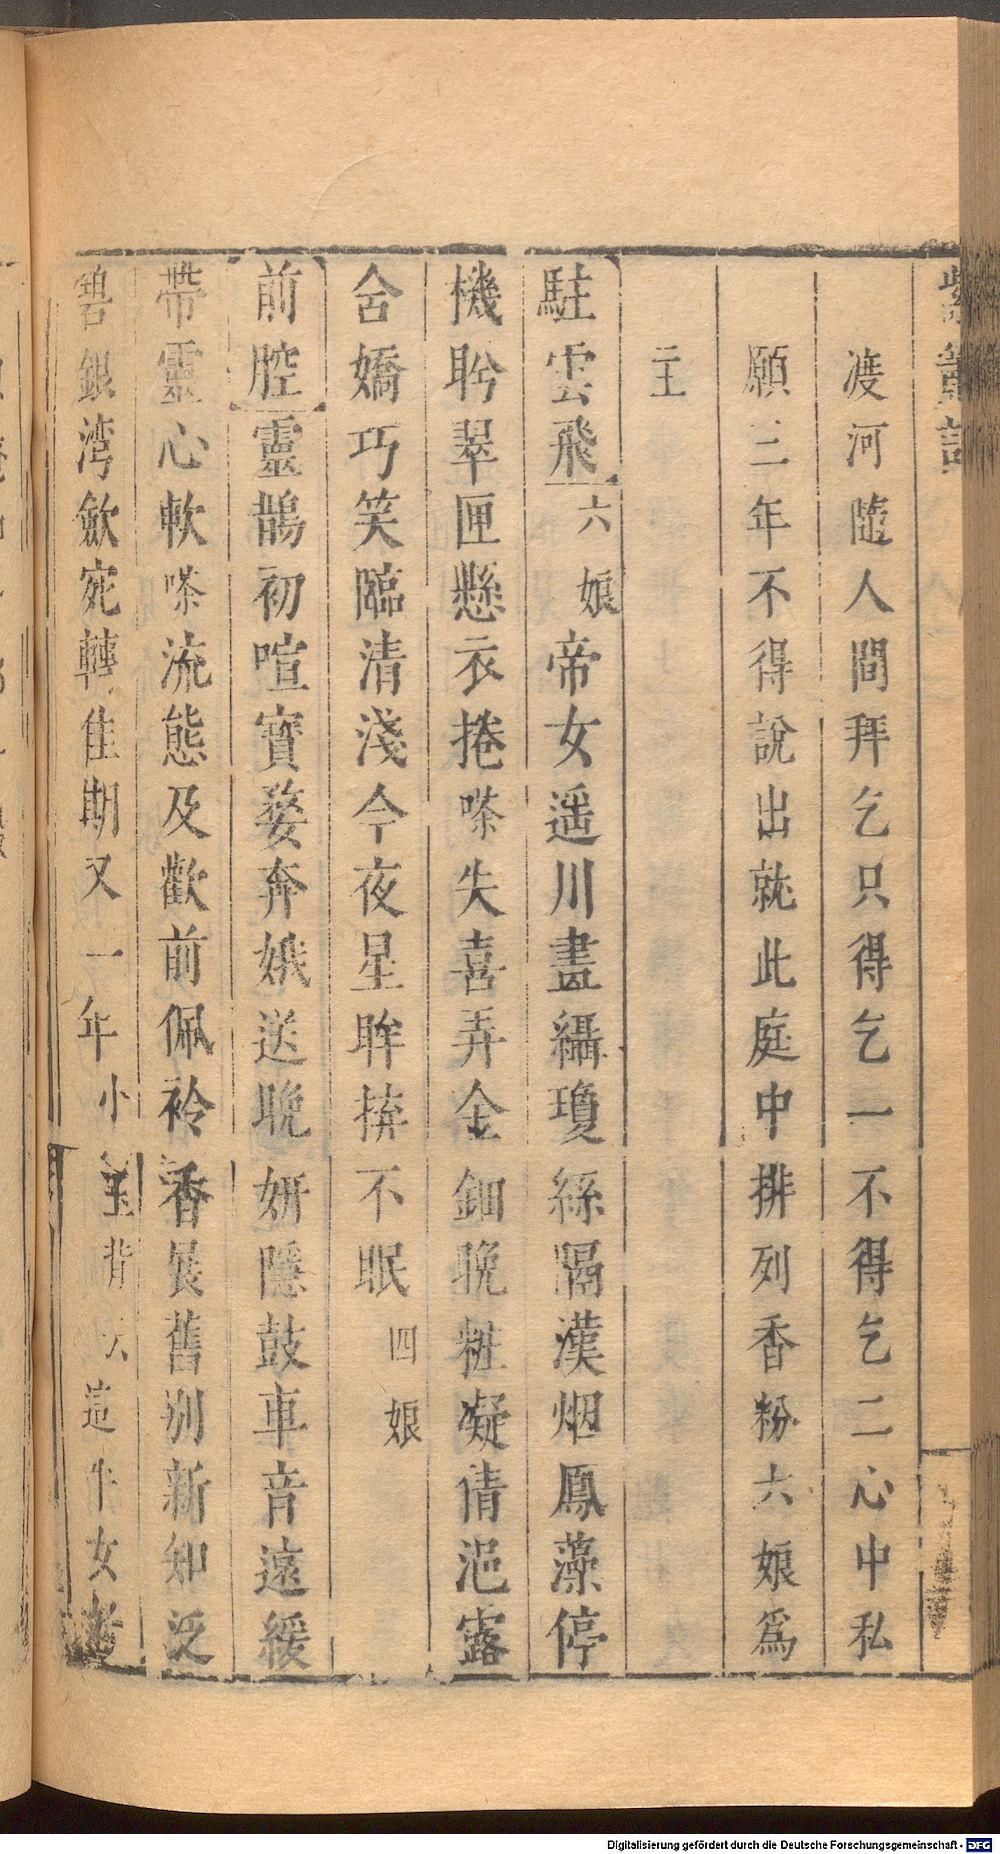 紫簫記
渡河隨人間拜乞只得乞一不得乞二心中私
願三年不得說出就此庭中排列香粉六娘爲
主
駐雲飛六娘帝女遥川晝繈瓊絲隔漢烟鳳藻停
機聆翠匣懸衣捲嗏失喜弄金鈿晩粧凝倩浥露
含嬌巧笑臨清淺今夜星眸捹不眠四娘
前腔靈鵲初喧寳婺奔娥送晩妍隱鼓車音遠緩
帶靈心軟嗏流態及歡前佩衿香展舊別新知泛
碧銀湾斂宛轉隹期又一年小玉背這牛女
Digitalisierung gefördert durch die Deutsche Forschungsgemeinschaft - DFG